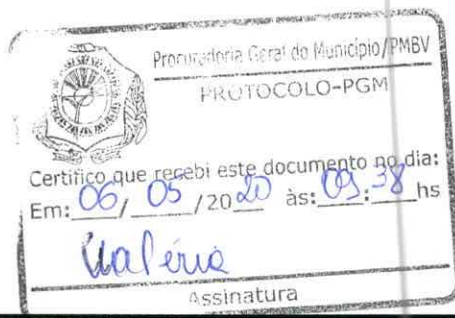 Procuradoria Geral do Município/PMBV
PROTOCOLO-PGM
Certifico que recebi este documento no dia:
Em: 06/ 05 /2020 às: 09:38 hs
Valéria
Assinatura